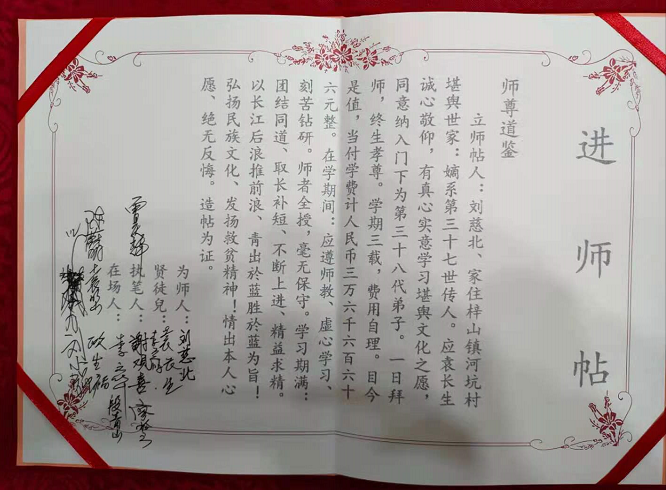 进师帖
师尊道鉴
立师帖人：刘慈北、家住梓山镇河坑村
堪舆世家：嫡系第三十七世传人。应袁长生
诚心敬仰，有真心实意学习堪舆文化之愿，
同意纳入门下为第三十八代弟子。一日拜
师，终生孝尊。学期三载，费用自理。目今
是值，当付学费计人民币三万六千六百六十
六元整。在学期间：应遵师教、虚心学习、
刻苦钻研。师者全授，毫无保守。学习期满：
团结同道、取长补短、不断上进、精益求精。
以长江后浪推前浪、青出於蓝胜於蓝为旨！
弘扬民族文化、发扬救贫精神！情出本人心
愿、绝无反悔。造帖为证。
为师人：刘慈北
贤徒兒：袁长生
执笔人：
在场人：